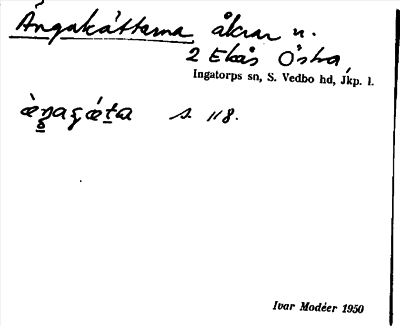 Ängakåttarna åkrar n.
2 Ekås Östra,
Ingatorps sn, S. Vedbo hd, Jkp. l.
s. 118.
Ivar Modéer 1950